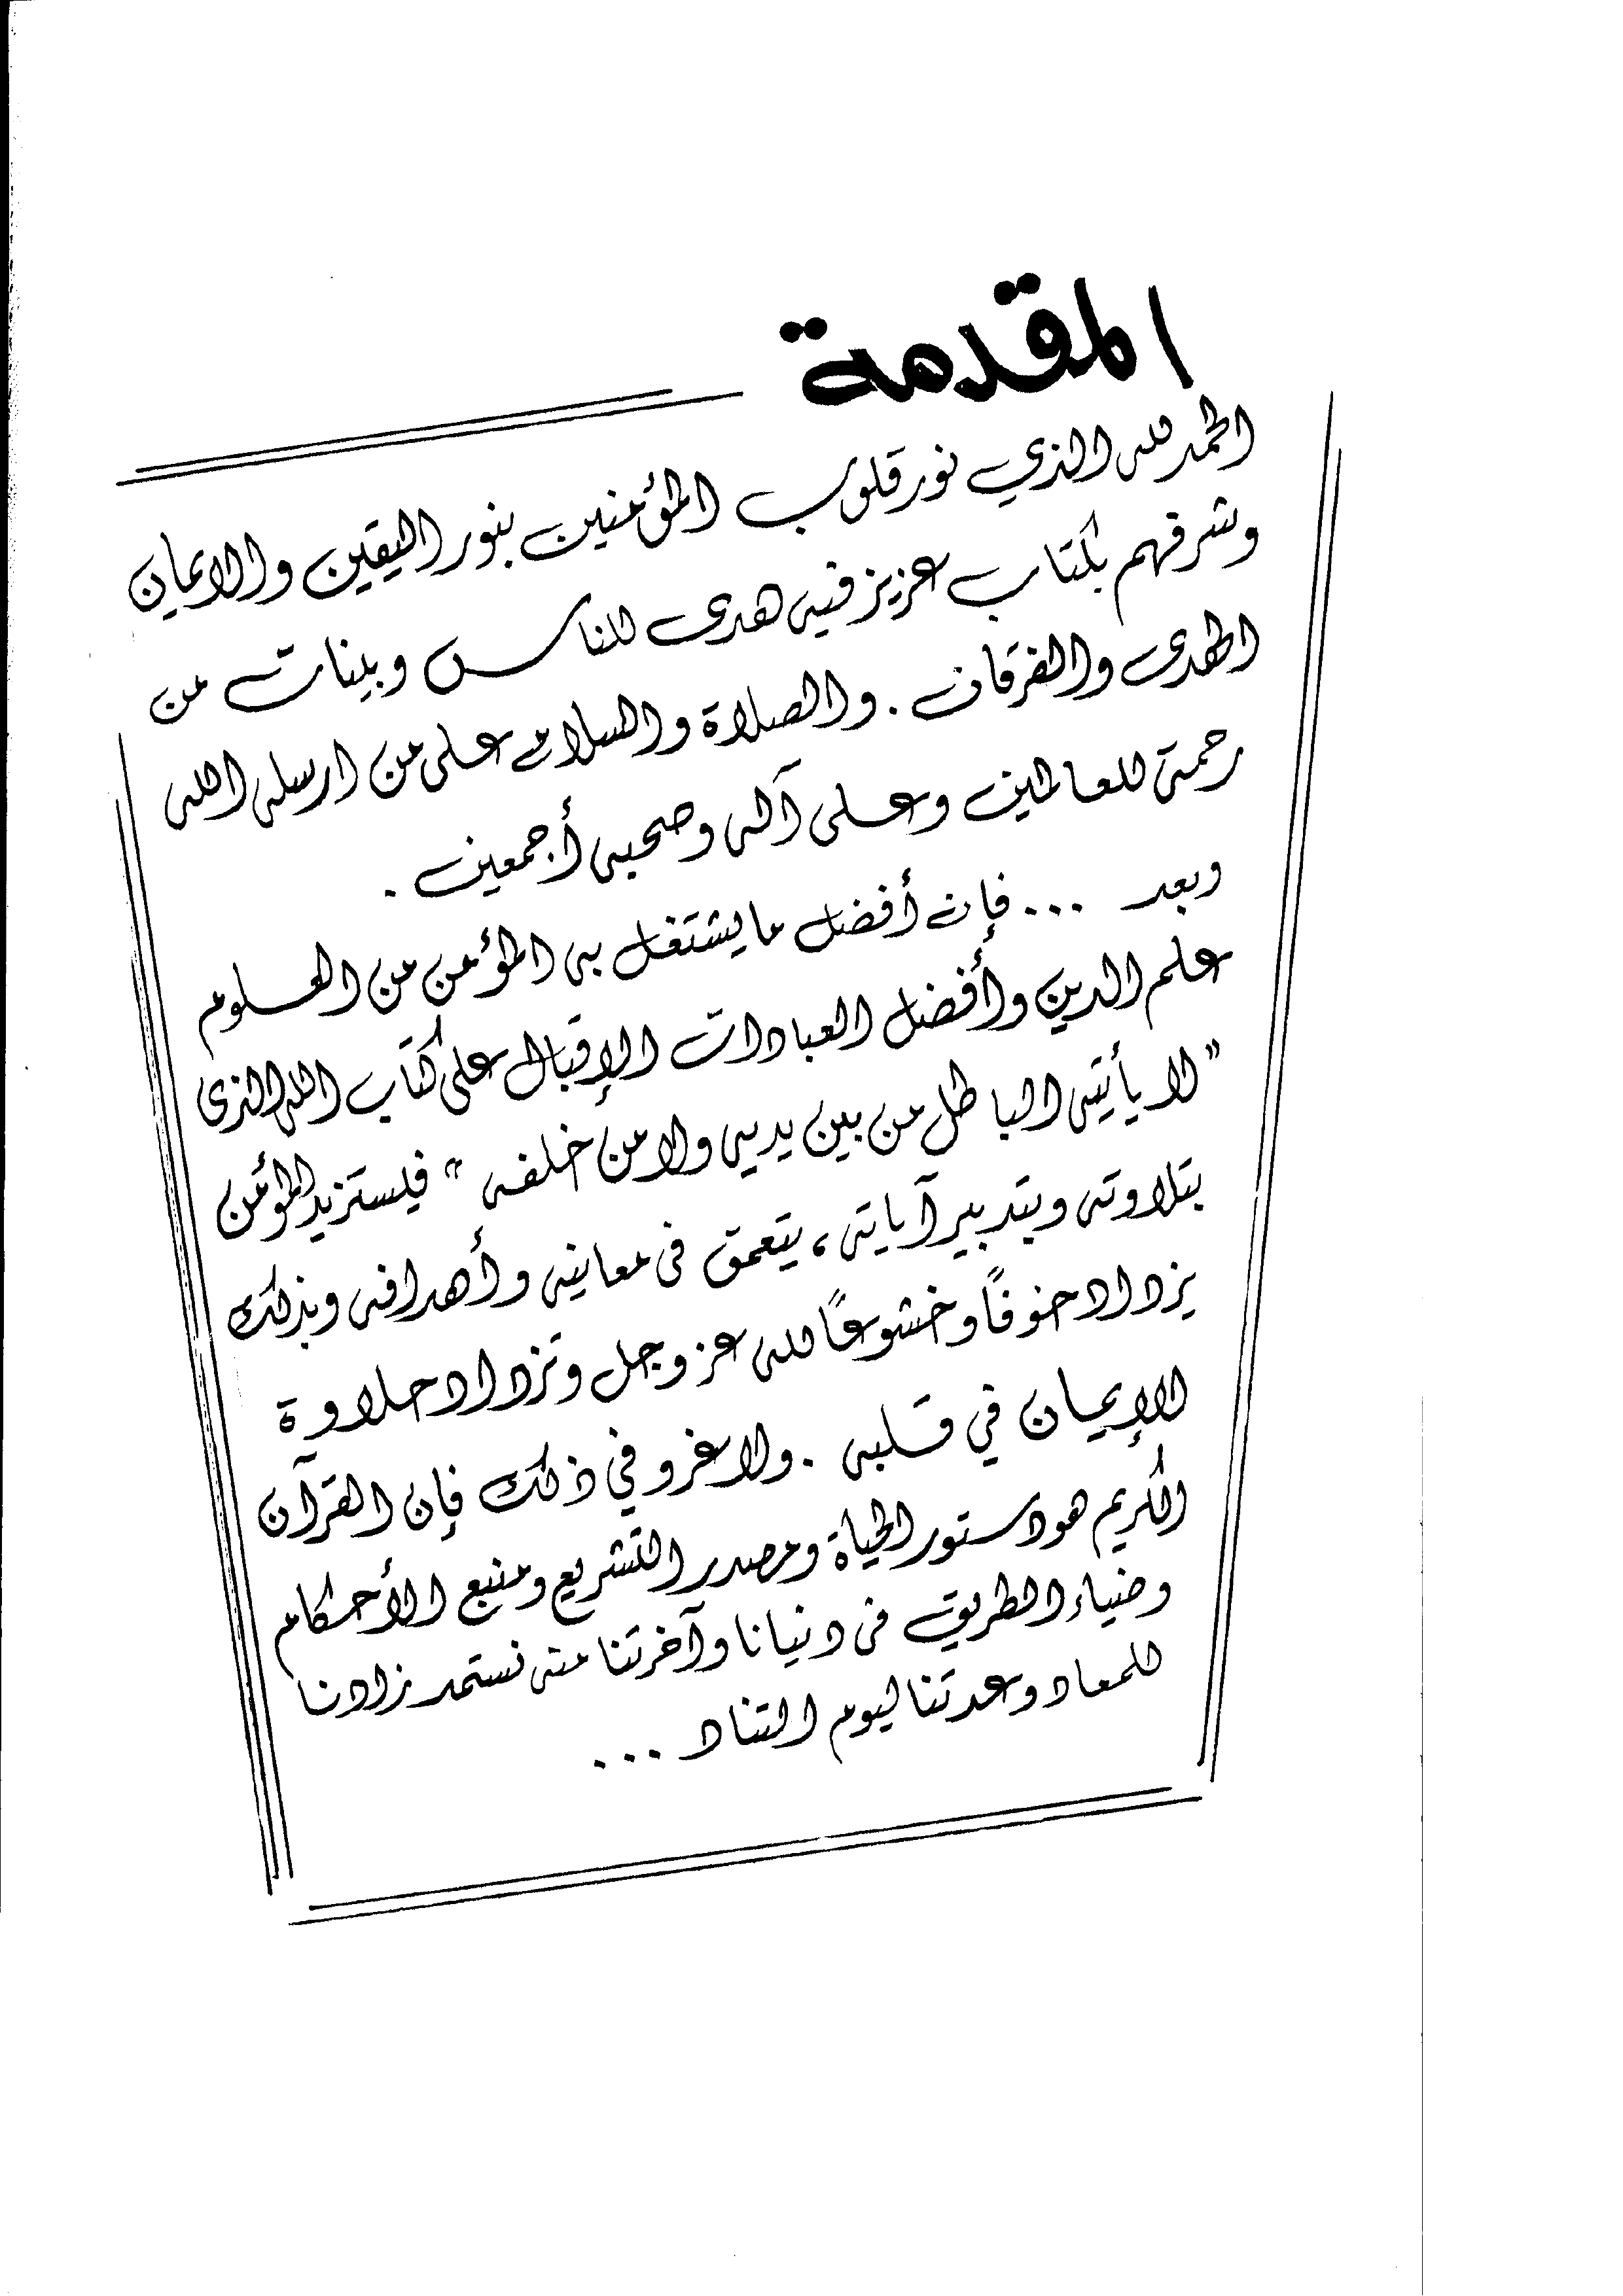 المقدمة
الحمد لله الذي نور قلوب المؤمنين بنور اليقين والايمان
وشرفهم بكتاب عزيز فيه هدى للناس وبينات من
الهدى والفرقان . والصلاة والسلام على من ارسله الله
رحمة للعالمين وعلى آله وصحبه أجمعين .
وبعد ... فإن أفضل ما يشتغل به المؤمن من العلوم
علم الدين وأفضل العبادات الإقبال على كتاب الله الذى
" لا يأتيه الباطل من بين يديه ولا من خلفه " فليستزيد المؤمن
بتلاوته وبتدبير آياته ، يتعمق فى معانيه وأهدافه وبذلك
يزداد خوفاً وخشوعاً لله عز وجل وتزداد حلاوة
الإيمان في قلبه . ولا غرو في ذلك فإن القرآن
الكريم هو دستور الحياة ومصدر التشريع ومنبع الأحكام
وضياء الطريق فى دنيانا وآخرتنا منه نستمد زادنا
للمعاد وعدتنا ليوم التناد ...